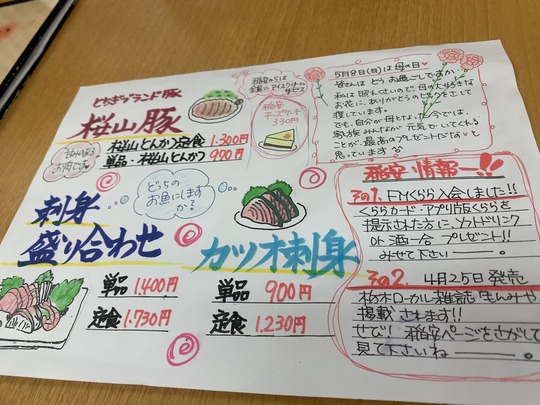 とちぎブランド豚
桜山豚
桜山とんかつ定食 1.300円
単品・桜山とんかつ 900円
お肉です。
全員にアイスクリーム
サービス
稲安
チーズケーキ
330円
5月8日(日)は母の日♥
皆さんは どう お過ごしですか…
私は 照れくさいので 母の大好きな
お花に、ありがとうのきもちをそえて
渡しています。
でも、自分が母となった今では
家族みんなが 元気でいてくれる
ことが、最高のプレゼントだな♥と
思っています
どちらの
お魚にします
か?
刺身
盛り合わせ
単品 1.400円
定食 1.730円
カツオ刺身
単品 900円
定食 1.230円
稲安 情報ー!!
その1. FMくらら入会しました!!
くららカード・アプリ版くららを
提示された方に ソフトドリンク
or 酒一合 プレゼント!!
みせて下さい
その2. 4月25日発売
栃木ローカル雑誌
掲載 されます!!
ぜひ! 稲安ページをさがして
見て下さいね